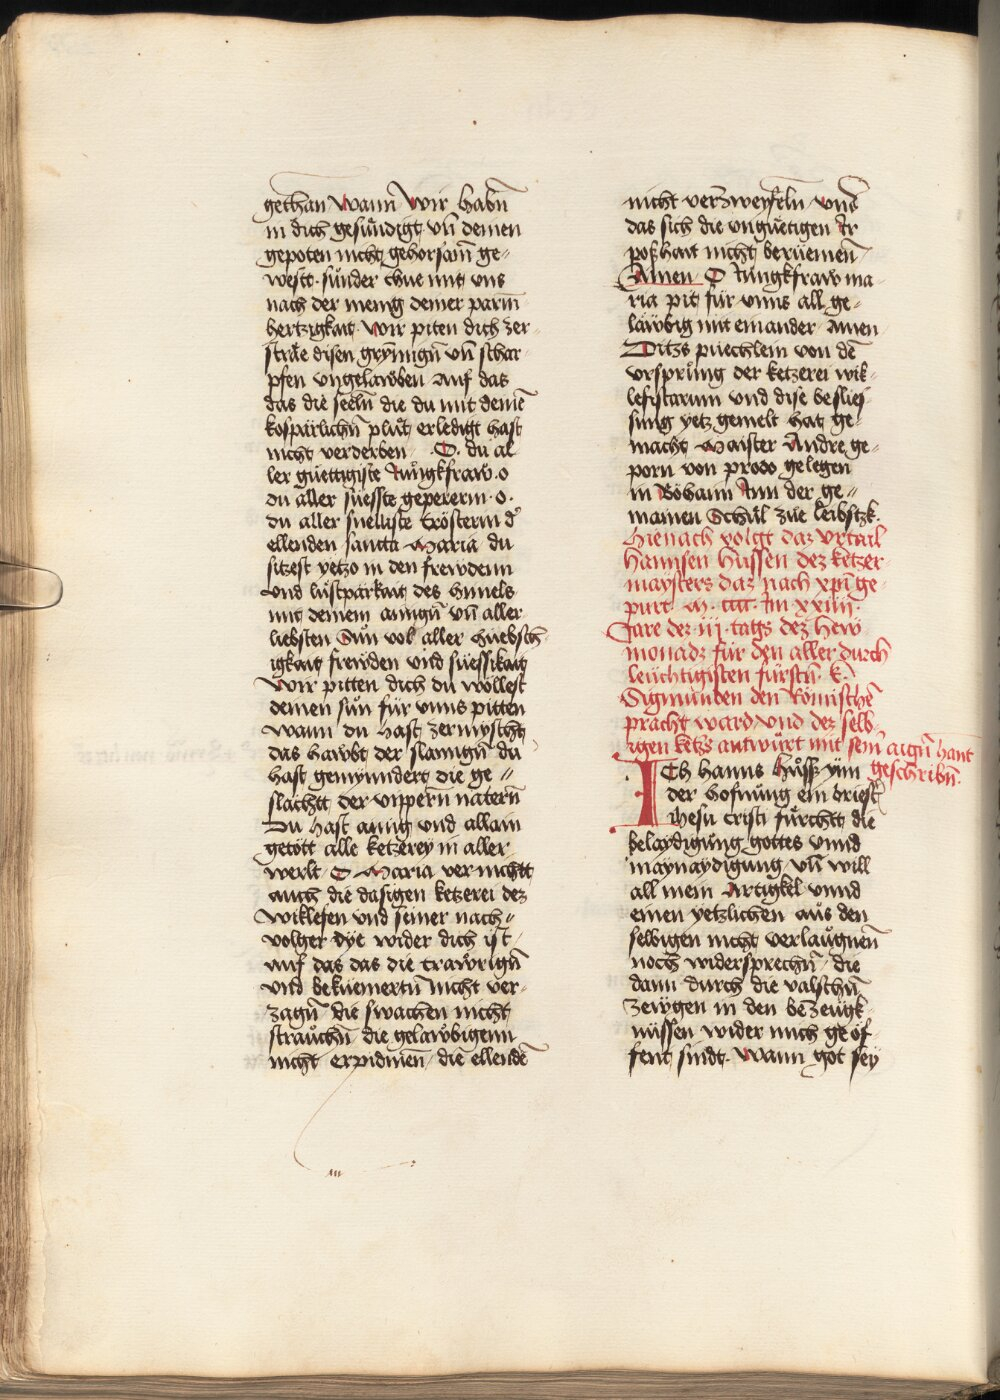 gethan Wann Wir habn̄
in dich gesündigt vn̄ deinen
gepoten nicht gehorsam̄ ge⸗
west · sunder thue mit vns
nach der menig deiner parm̄
hertzigkait Wir piten dich zer⸗
sträe disen grym̄ign̄ vn̄ schar⸗
pfen vngelawben Auf das
das die seeln̄ die du mit deinē
kospärlichn̄ plůt erledigt hast
nicht verderben · O · du al⸗
ler güettigiste Jungkfraw · o
du aller süessste gepererin · o ·
du aller snelliste trösterin d͛
ellenden sancta Maria du
sitzest yetzo in den frewdenn
vnd lustpärkait des himels
mit deinem ainign̄ vn̄ aller
liebsten Sun vol aller hüebsch⸗
igkait frewden vnd süessikait
Wir pitten dich du wöllest
deinen sun für vnns pitten
wann du hast zermyscht
das hawbt der slanngn̄ du
hast gemynndert die ge⸗
slächtt der vippern̄ natern̄
Du hast ainig vnd allain
getött alle ketzerey in aller
werlt O Maria vernichtt
auch die dasigen ketzerei dez
Wiklefen vnd seiner nach⸗
volger dye wider dich ist
auf das das die trawrign̄
vnd bekümertn̄ nicht ver⸗
zagn̄ die swachen nicht
strauchn̄ die gelawbigenn
nicht erpidmen die ellendē
nicht verzweyfeln̄ vnē
das sich die vngüetigen Jr
poßhait nicht berüemen̄
Amen O Jungkfraw ma⸗
ria pit für vnns all ge⸗
läwbig mit einander Amen
Ditzs püechlein von dē
vrsprung der ketzerei wik⸗
lefistarum vnd dise beslies⸗
sung yetz gemelt hat ge⸗
macht Maister Andre ge⸗
porn von prodo gelegen
in Böhaim Inn der ge⸗
mainen Schůl zue leibtzk ·
Hienach volgt daz vrtail
Hannsen Hussen dez ketzer⸗
maysters daz nach xp̄i ge⸗
purt M · cccc · Im xxiiij ·
Jare dez iij · tags dez hew
monadz für den aller durch
leuchtigisten fürstn̄ · k ·
Sigmunden den Römischē
pracht ward vnd dez selb⸗
igen ketz͛s antwürt mit sein̄ aign̄ hant
geschribn̄ ·
ICh hanns Huss ynn
der hofnung ein briest͛
ihesu cristi fürchtt die
belaydigung gottes vnnd
maynaydigung vn̄ will
all mein Artigkel vnnd
einen yetzlichen aus den
selbigen nicht verlaugnen̄
noch widersprechn̄ die
dann durch die valschn̄
zewgen in den bezeugk⸗
nüssen wider mich geöf⸗
fent sindt · Wann got sey